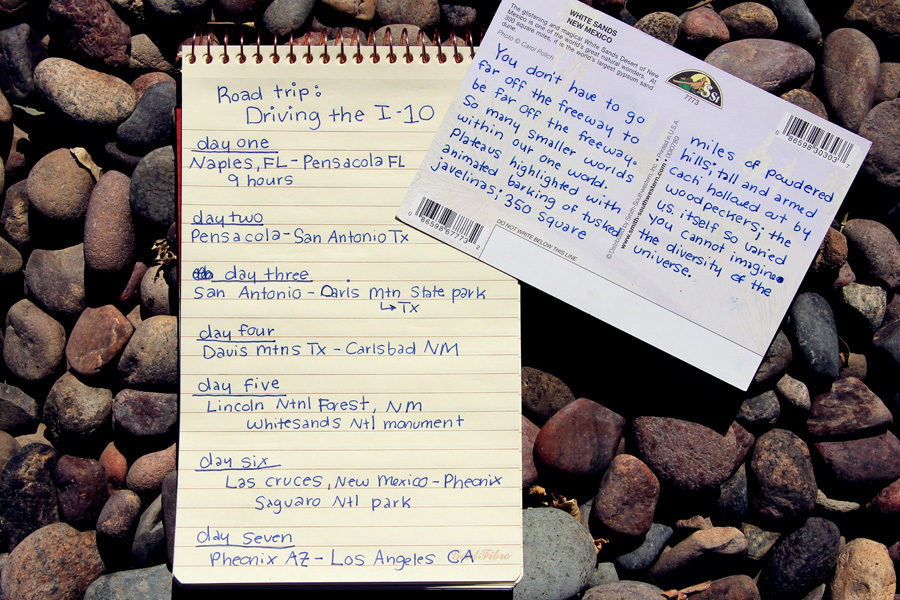 Road trip:
Driving the I-10
day one
Naples, FL - Pensacola FL
9 hours
day two
Pensacola - San Antonio Tx
day three
San Antonio - Davis mtn State park
Tx
day four
Davis mtns Tx - Carlsbad NM
day five
Lincoln Ntnl Forest, NM
whitesands Ntl monument
day six
Las cruces, New Mexico - Pheonix
Saguaro Ntl park
day seven
Pheonix AZ - Los Angeles CA
WHITE SANDS
NEW MEXICO
The glistening and magical White Sands Desert of New
Mexico is one of the world's great natural wonders. At
300 square miles, it is the world's largest gypsum sand
dune.
Photo © Carol Polich
You don't have to go
far off the freeway to
be far off the freeway.
So many smaller worlds
within our one world.
Plateaus highlighted with
animated barking of tusked
javelinas; 350 square
7773
0 86598 67773 2
DO NOT WRITE BELOW THIS LINE
© Distributed by Smith-Southwestern, Inc. • Printed in U.S.A.
www.smith-southwestern.com • 000789
0 86598 30303 7
miles of powdered
hills; tall and armed
each hollowed out by
woodpeckers; the
US itself so varied
you cannot imagine
the diversity of the
universe.